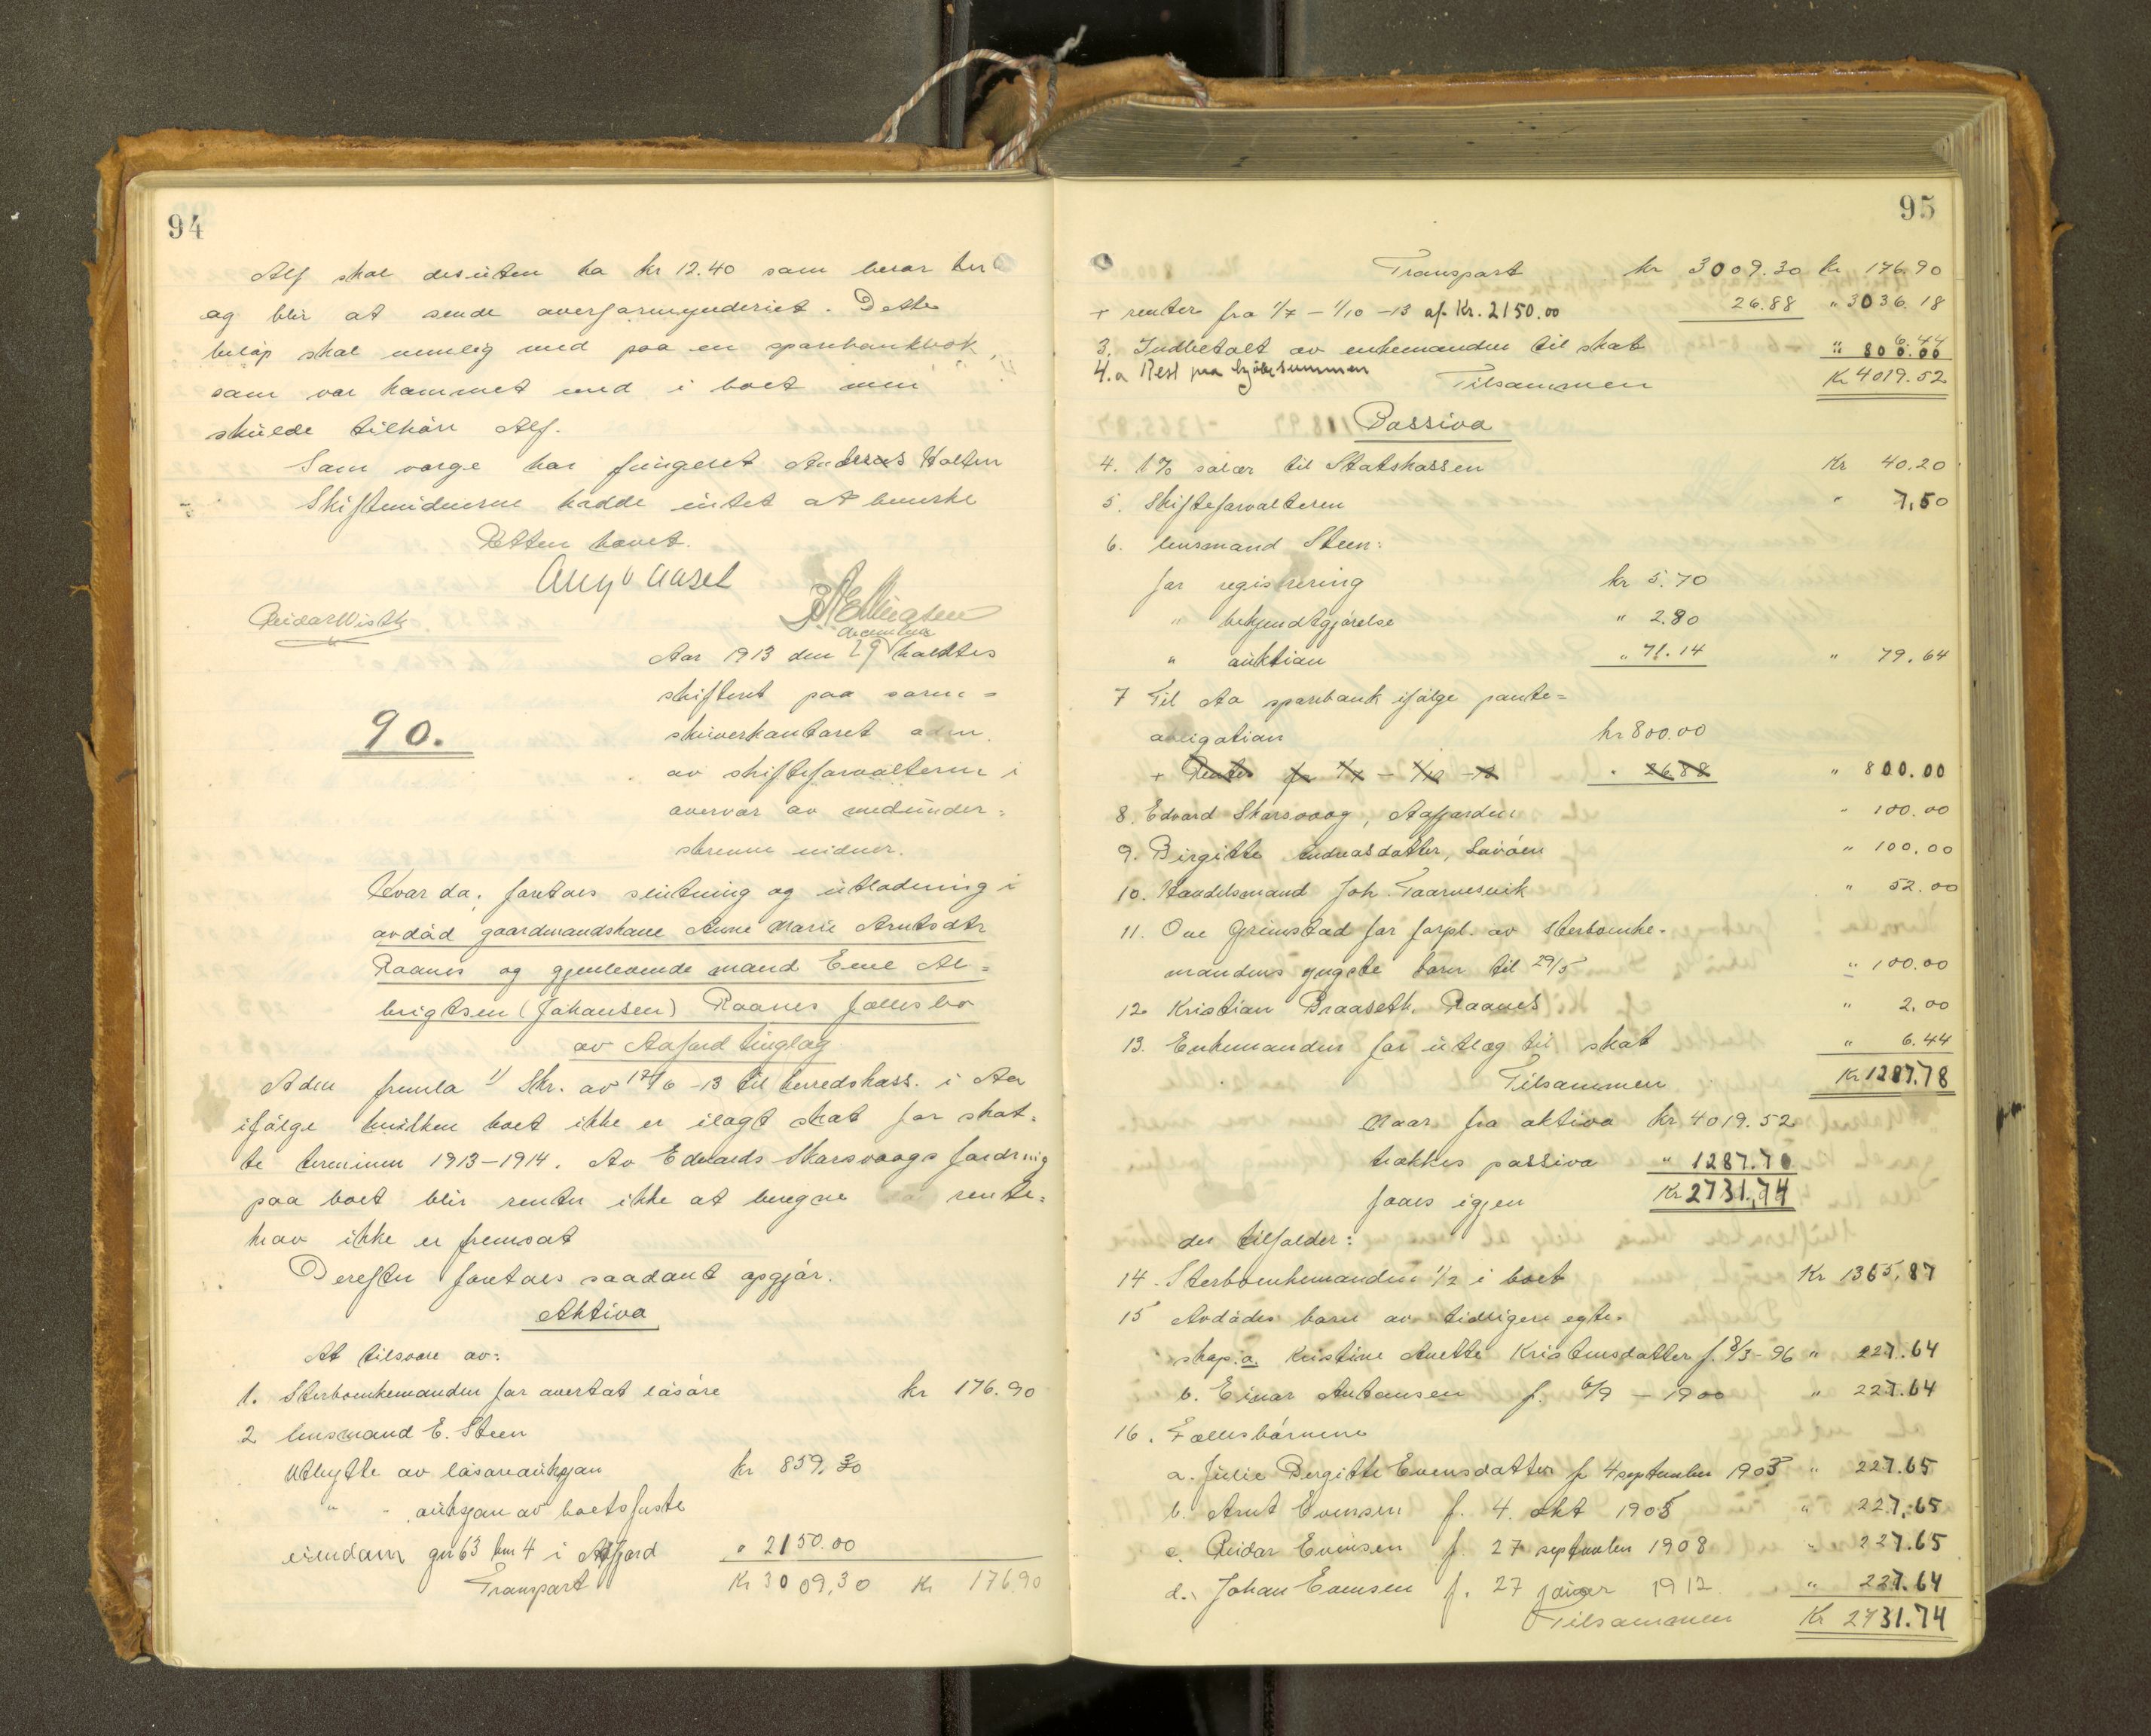 94
Alf skal desuten ha kr 12.40 som beror her
og blir at sende overformynderiet. Dette
beløp skal nemlig med paa en sparebankbok,
som var kommet med i boet men
skulde tilhøre Alf.
Som verge har fungeret Andreas Holten
Skiftevidnerne hadde intet at bemerke
Retten hævet.
Aug. Aasel
Reidar Wisth
90.
Aar 1913 den 29 holdtes
skifteret paa soren=
skriverkontoret adm.
av skifteforvalteren i
overvær av medunder=
skrevne vidner.
Hvorda: foretaes slutning og utlodning i
avdød gaardmandskone Anne Marie Arntsdtr
Raanes og gjenlevende mand Even Al=
brigtsen (Johansen) Raanes fællesbo
av Aafjord tinglag.
Aden fremla 1) Skr. av 17/6 -13 til herredskass. i Aa
ifølge hvilken boet ikke er ilagt skat for skat=
te terminen 1913-1914. Av Edvards Skarsvaags fordring
paa boet blir renter ikke at beregne rente=
krav ikke er fremsat
Derefter foretaes saadant opgjør.
Aktiva
At tilsvare av:
1. Sterboenkemanden for overtat løsøre kr 176.90
2 lensmand E. Steen
Utbytte av løsøreauksjon kr 859.30
" " auksjon av boets faste
eiendom gn 63 bn 4 i Aafjord " 2150.00
Transport Kr 3009.30 Kr 176.90
95
Transport kr 3009.30 kr 176.90
+ renter fra 1/7 - 1/10 -13 af Kr. 2150.00 26.88 " 3036.18
3. Indbetalt av enkemanden til skat 6.44
4.a Rest paa kjøbesummen " 800.00
Tilsammen Kr 4019.52
Passiva
4. 1% salær til Statskassen Kr 40.20
5. Skifteforvalteren " 7.50
6. lensmand Steen:
for registrering kr 5.70
" bekjendtgjørelse " 2.80
" auktion " 71.14 " 79.64
7 Til Aa sparebank ifølge pante=
obligation kr 800.00
+ Renter fra 1/7 - 1/10 -13 " 26.88 " 800.00
8. Edvard Skarsvaag, Aafjorden " 100.00
9. Birgitte Andreasdatter, " 100.00
10. Handelsmand Joh. Taarnesvik " 52.00
11. Ove Grimstad for forpl. av sterboenke-
mandens yngste barn til 29/5 " 100.00
12. Kristian Braaseth Raanes " 2.00
13. Enkemanden for utlæg til skat " 6.44
Tilsammen Kr 1287.78
Naar fra aktiva kr 4019.52
trækkes passiva " 1287.78
faaes igjen Kr 2731.74
der tilfalder:
14. Sterboenkemanden 1/2 i boet Kr 1365.87
15 Avdødes barn av tidligere egte-
skap. a. Kristine Anette Kristensdatter f. 8/3-96 " 227.64
b. Einar Antonsen f. 6/9 - 1900 " 227.64
16. Fællesbørnene
a. Julie Bergitte Evensdatter f 4 september 1903 " 227.65
b. Arnt Evensen f. 4. okt 1905 " 227.65
c. Reidar Evensen f. 27 september 1908 " 227.65
d. Johan Evensen f. 27 januar 1912 " 227.64
Tilsammen Kr 2731.74